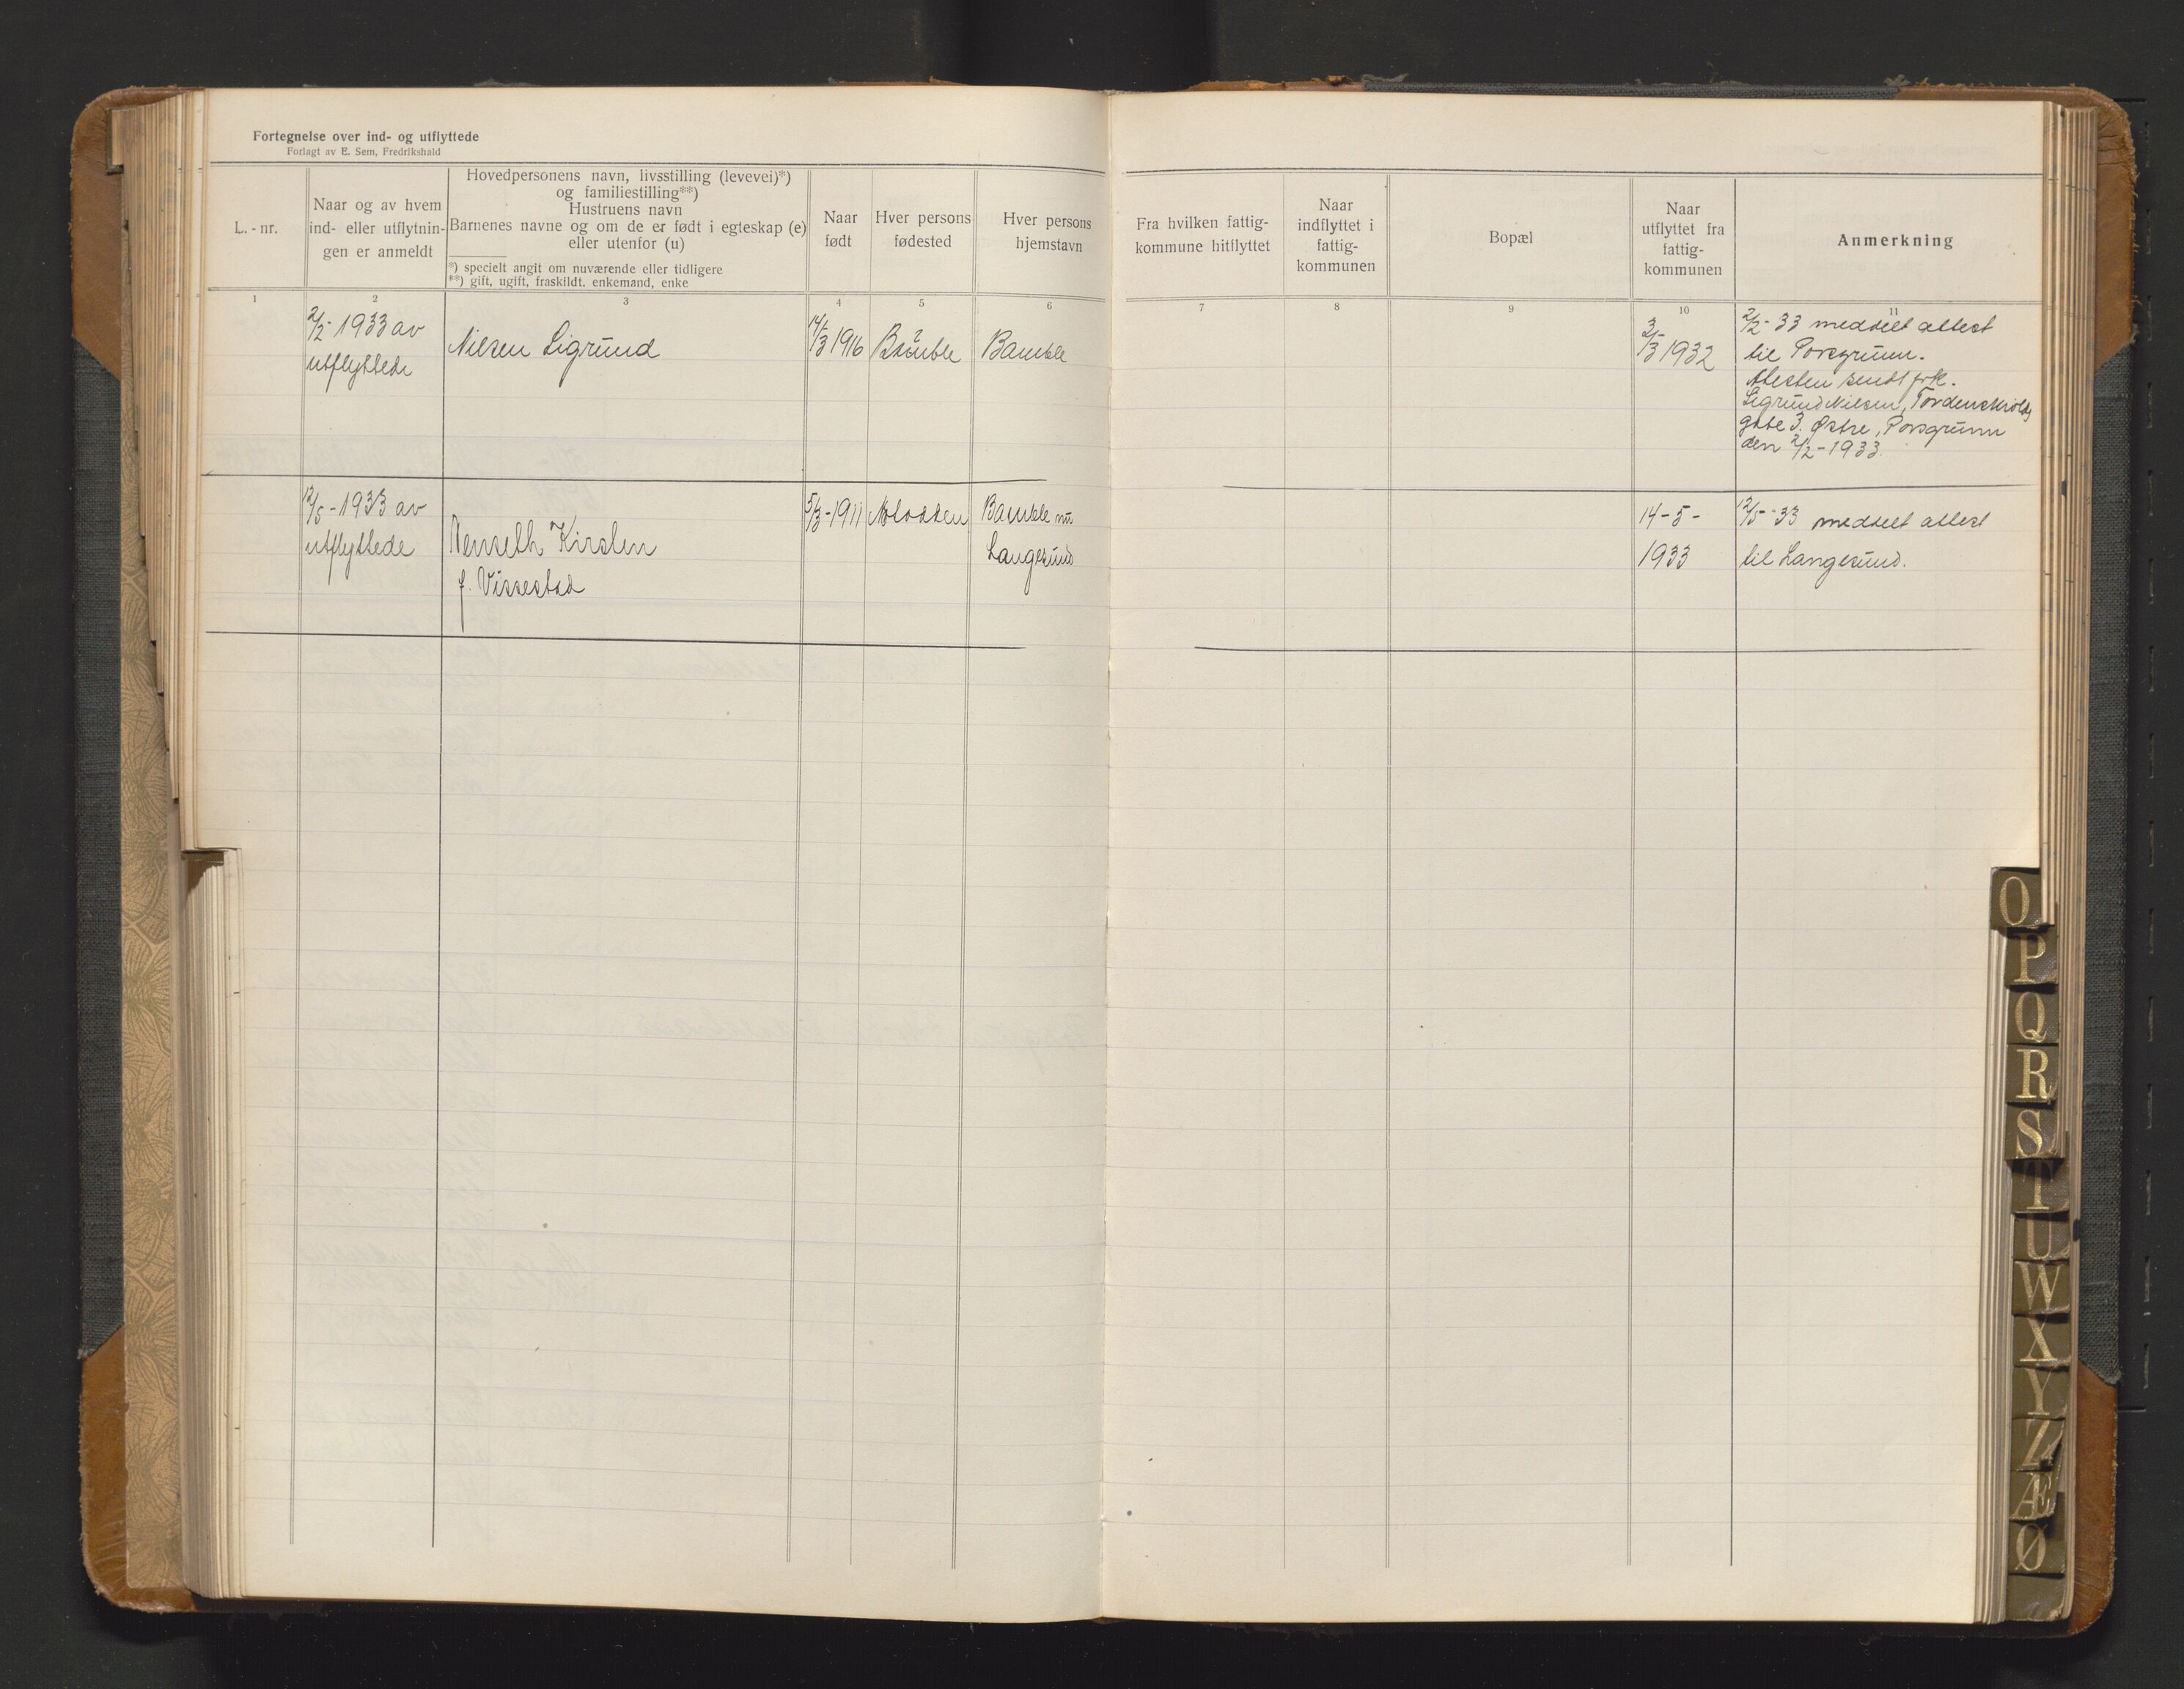 Fortegnelse over ind- og utflyttede
Forlagt av E. Sem, Fredrikshald
L.-nr.
Naar og av hvem
ind- eller utflytnin-
gen er anmeldt
Hovedpersonens navn, livsstilling (levevei)*)
og familiestilling**)
Hustruens navn
Barnenes navne og om de er født i egteskap (e)
eller utenfor (u)
*) specielt angit om nuværende eller tidligere
**) gift, ugift, fraskildt, enkemand, enke
Naar
født
Hver persons
fødested
Hver persons
hjemstavn
Fra hvilken fattig-
kommune hitflyttet
Naar
indflyttet i
fattig-
kommunen
Bopæl
Naar
utflyttet fra
fattig-
kommunen
Anmerkning
1 2 3 4 5 6 7 8 9 10 11
2/2- 1933 av
utflyttede
Nilsen Sigrund
14/3 1916
Bamble
2/3- 1932
2/2- 33 meddelt attest
til Porsgrunn.
Attesten sendt frk.
Sigrund Nilsen, Tordenskiolds
gate 3. Østre, Porsgrunn
den 2/2-1933.
12/5-1933 av
utflyttede
Kirsten
f. Vissestad
5/3-1911
Bamble nu
Langesund
14-5-
1933
12/5-33 meddelt attest
til Langesund.
O
P
Q
R
S
T
U
W
X
Y
Z
Æ
Ø